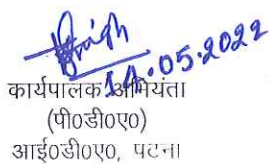 14.05.2022
कार्यपालक अभियंता
(पी०डी०ए०)
आई०डी०ए०, पटना